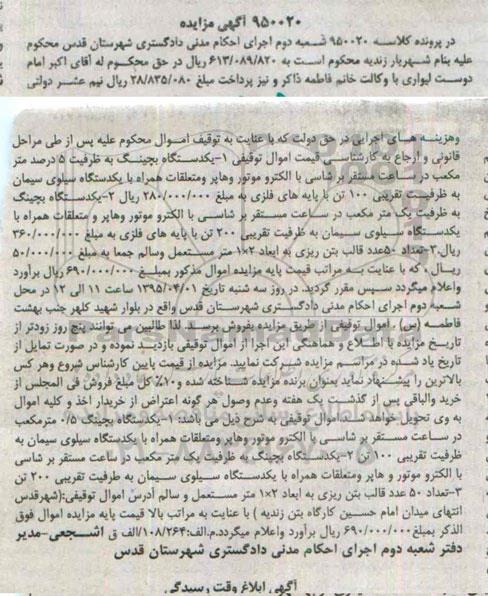 ۹۵۰۰۲۰ آگهی مزایده
در پرونده کلاسه ۹۵۰۰۲۰ شعبه دوم اجرای احکام مدنی دادگستری شهرستان قدس محکوم
علیه بنام شهریار زندیه محکوم است به ۶۱۳/۰۸۹/۸۲۰ ریال در حق محکوم له آقای اکبر امام
دوست لیواری با وکالت خانم فاطمه ذاکر و نیز پرداخت مبلغ ۲۸/۸۳۵/۰۸۰ ریال نیم عشر دولتی
وهزینه های اجرایی در حق دولت که با عنایت به توقیف اموال محکوم علیه پس از طی مراحل
قانونی و ارجاع به کارشناسی قیمت اموال توقیفی ۱-یکدستگاه بچینگ به ظرفیت ۵ درصد متر
مکعب در ساعت مستقر بر شاسی با الکترو موتور وهاپر ومتعلقات همراه با یکدستگاه سیلوی سیمان
به ظرفیت تقریبی ۱۰۰ تن با پایه های فلزی به مبلغ ۲۸۰/۰۰۰/۰۰۰ ریال ۲-یکدستگاه بچینگ
به ظرفیت یک متر مکعب در ساعت مستقر بر شاسی با الکترو موتور وهاپر و متعلقات همراه با
یکدستگاه سیلوی سیمان به ظرفیت تقریبی ۲۰۰ تن با پایه های فلزی به مبلغ ۳۶۰/۰۰۰/۰۰۰
ریال.۳-تعداد ۵۰عدد قالب بتن ریزی به ابعاد ۲×۱ متر مستعمل وسالم جمعا به مبلغ ۵۰/۰۰۰/۰۰۰
ریال . که با عنایت به مراتب قیمت پایه مزایده اموال مذکور بمبلغ ۶۹۰/۰۰۰/۰۰۰ ریال برآورد
واعلام میگردد سپس مقرر گردید. در روز سه شنبه تاریخ ۱۳۹۵/۰۴/۰۱ ساعت ۱۱ الی ۱۲ در محل
شعبه دوم اجرای احکام مدنی دادگستری شهرستان قدس واقع در بلوار شهید کلهر جنب بهشت
فاطمه (س) . اموال توقیفی از طریق مزایده بفروش برسد. لذا طالبین می توانند پنج روز زودتر از
تاریخ مزایده با اطلاع و هماهنگی این اجرا از اموال توقیفی بازدید نموده و در صورت تمایل از
تاریخ یاد شده در مراسم مزایده شرکت نمایید. مزایده از قیمت پایین کارشناس شروع وهر کس
بالاترین را پیشنهاد نماید بعنوان برنده مزایده شناخته شده و۱۰٪ کل مبلغ فروش فی المجلس از
خرید والباقی پس از گذشت یک هفته وعدم وصول هر گونه اعتراض از خریدار اخذ و کلیه اموال
به وی تحویل خواهد شد.اموال توقیفی به شرح ذیل می باشد: ۱-یکدستگاه بچینگ ۰/۵ مترمکعب
در ساعت مستقر بر شاسی با الکترو موتور وهاپر ومتعلقات همراه با یکدستگاه سیلوی سیمان به
ظرفیت تقریبی ۱۰۰ تن ۲-یکدستگاه بچینگ به ظرفیت یک متر مکعب در ساعت مستقر بر شاسی
با الکترو موتور و هاپر ومتعلقات همراه با یکدستگاه سیلوی سیمان به ظرفیت تقریبی ۲۰۰ تن
۳-تعداد ۵۰ عدد قالب بتن ریزی به ابعاد ۲×۱ متر مستعمل و سالم آدرس اموال توقیفی:(شهرقدس
انتهای میدان امام حسین کارگاه بتن زندیه ) با عنایت به مراتب بالا قیمت پایه مزایده اموال فوق
الذکر بمبلغ ۶۹۰/۰۰۰/۰۰۰ ریال برآورد واعلام میگردد.م.الف:۱۰۸/۲۶۴الف ق اشجعی-مدیر
دفتر شعبه دوم اجرای احکام مدنی دادگستری شهرستان قدس
آگهی ابلاغ وقت رسیدگی